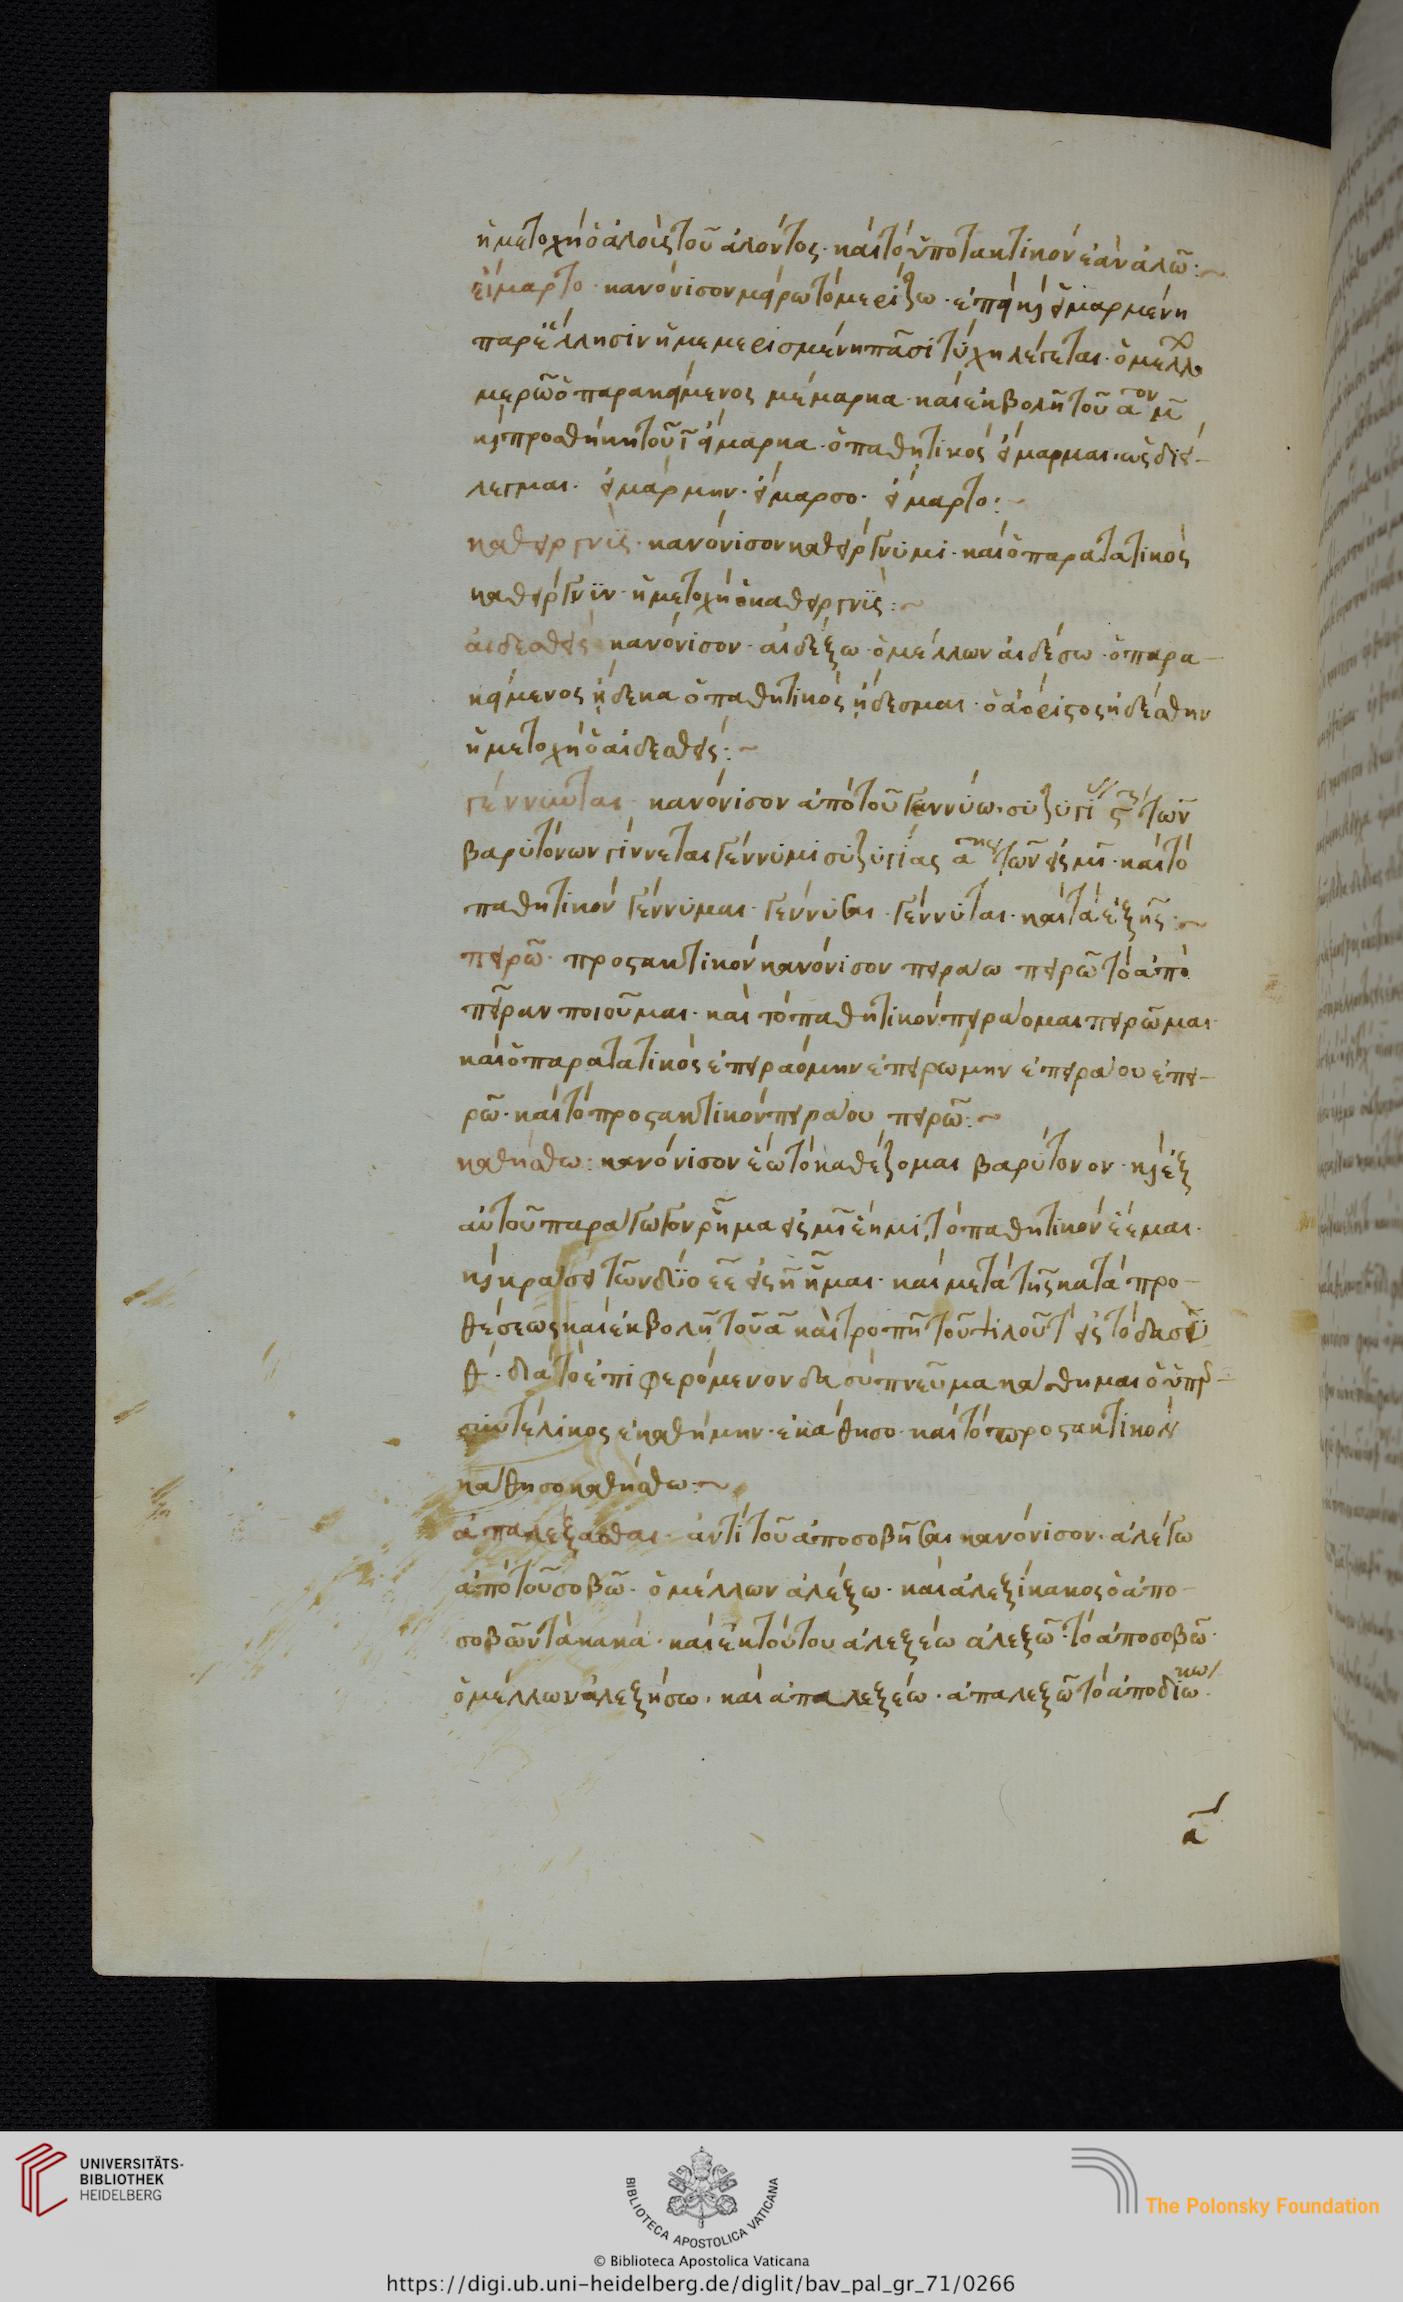 ἡ μετοχὴ ὁ ἁλοὺς τοῦ ἁλόντος· καὶ τὸ ὑποτακτικὸν ἐὰν ἁλῶ:~
εἵμαρτο· κανόνισον μείρω τὸ μερίζω· ἐπεὶ κ εἱμαρμένη
παρ' ἕλλησιν ἡ μεμερισμένη πᾶσι τύχη λέγεται· ὁ μέλλ
μερῶ ὁ παρακείμενος μέμαρκα· καὶ ἐκβολῇ τοῦ α^ον μ̄
κ προσθήκη τοῦ ῑ εἵμαρκα· ὁ παθητικὸς εἵμαρμαι· ὡς διεί-
λεγμαι· εἱμάρμην· εἵμαρσο· εἵμαρτο:~
καθειργνὺς· κανόνισον καθείργνυμι· καὶ ὁ παρατατικὸς
καθείργνυν· ἡ μετοχὴ ὁ καθειργνὺς:~
αἰδεσθεὶς κανόνισον· αἰδέζω· ὁ μέλλων αἰδέσω· ὁ παρα-
κείμενος ᾔδεκα ὁ παθητικὸς ᾔδεσμαι· ὁ ἀόριστος ᾐδέσθην
ἡ μετοχὴ ὁ αἰδεσθείς:~
γέννυται· κανόνισον ἀπὸ τοῦ γεννύω· συζυγί ϛ τῶν
βαρυτόνων γίννεται γέννυμι συζυγίας δ^ης τῶν εἰς μῑ· καὶ τὸ
παθητικὸν γέννυμαι· γέννυσαι· γέννυται· καὶ τὰ ἑξῆς:~
πειρῶ· προστακτικὸν κανόνισον πειράω πειρῶ τὸ ἀπό
πεῖραν ποιοῦμαι· καὶ τὸ παθητικὸν πειράομαι πειρῶμαι·
καὶ ὁ παρατατικὸς ἐπειραόμην ἐπειρώμην ἐπειράου ἐπει-
ρῶ· καὶ τὸ προστακτικὸν πειράου πειρῶ:~
καθήσθω: κανόνισον ἕω τὸ καθέζομαι βαρύτονον· κ ἐξ
αὐτοῦ παράγωγον ῥῆμα εἰς μῑ ἕημι, τὸ παθητικὸν ἕεμαι·
κ κράσει τῶν δύο εε εἰς η̄ ἧμαι· καὶ μετὰ τῆς κατὰ προ-
θέσεως καὶ ἐκβολῇ τοῦ ᾱ καὶ τροπῇ τοῦ ψιλοῦ τ εἰς τὸ δασὺ
θ· διὰ τὸ ἐπιφερόμενον δασὺ πνεῦμα κάθημαι ὁ ὑπερ-
συντέλικος ἐκαθήμην· ἐκάθησο· καὶ τὸ προστακτικὸν
κάθησο καθήσθω:~
ἀπαλέξασθαι· ἀντὶ τοῦ ἀποσοβῆσαι κανόνισον· ἀλέγω
ἀπὸ τοῦ σοβῶ· ὁ μέλλων ἀλέξω· καὶ ἀλεξίκακος ὁ ἀπο-
σοβῶν τὰ κακά· καὶ ἐκ τούτου ἀλεξέω ἀλεξῶ τὸ ἀποσοβῶ·
ὁ μέλλων ἀλεξήσω· καὶ ἀπαλεξέω· ἀπαλεξῶ τὸ ἀποδιώκω
UNIVERSITÄTS-
BIBLIOTHEK
HEIDELBERG
BIBLIOTECA APOSTOLICA VATICANA
The Polonsky Foundation
© Biblioteca Apostolica Vaticana
https://digi.ub.uni-heidelberg.de/diglit/bav_pal_gr_71/0266